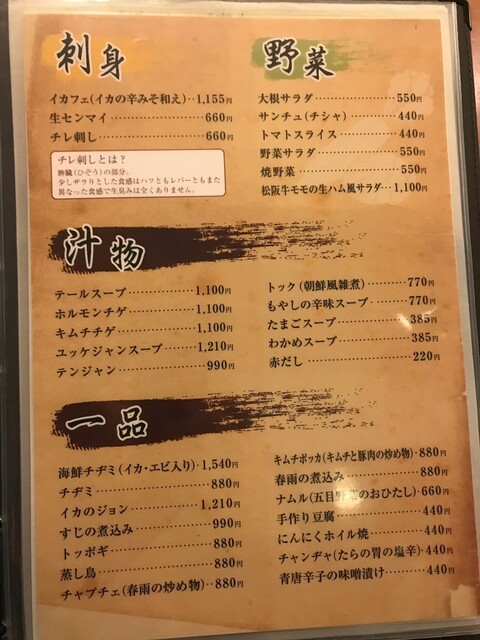 刺身
イカフェ(イカの辛みそ和え)‥1,155円
生センマイ……………660円
チレ刺し………………660円
チレ刺しとは？
脾臓(ひぞう)の部分。
少しザラりとした食感はハツともレバーともまた
異なった食感で生臭みは全くありません。
野菜
大根サラダ……………550円
サンチュ(チシャ)………440円
トマトスライス…………440円
野菜サラダ……………550円
焼野菜…………………550円
松阪牛モモの生ハム風サラダ‥1,100円
汁物
テールスープ…………1,100円
ホルモンチゲ…………1,100円
キムチチゲ……………1,100円
ユッケジャンスープ……1,210円
テンジャン………………990円
トック(朝鮮風雑煮)……770円
もやしの辛味スープ……770円
たまごスープ……………385円
わかめスープ……………385円
赤だし……………………220円
一品
海鮮チヂミ(イカ・エビ入り)‥1,540円
チヂミ……………………880円
イカのジョン……………1,210円
すじの煮込み……………990円
トッポギ…………………880円
蒸し鳥……………………880円
チャプチェ(春雨の炒め物)‥880円
キムチポッカ(キムチと豚肉の炒め物)‥880円
春雨の煮込み……………880円
ナムル(五目野菜のおひたし)‥660円
手作り豆腐………………440円
にんにくホイル焼…………440円
チャンヂャ(たらの胃の塩辛)‥440円
青唐辛子の味噌漬け………440円